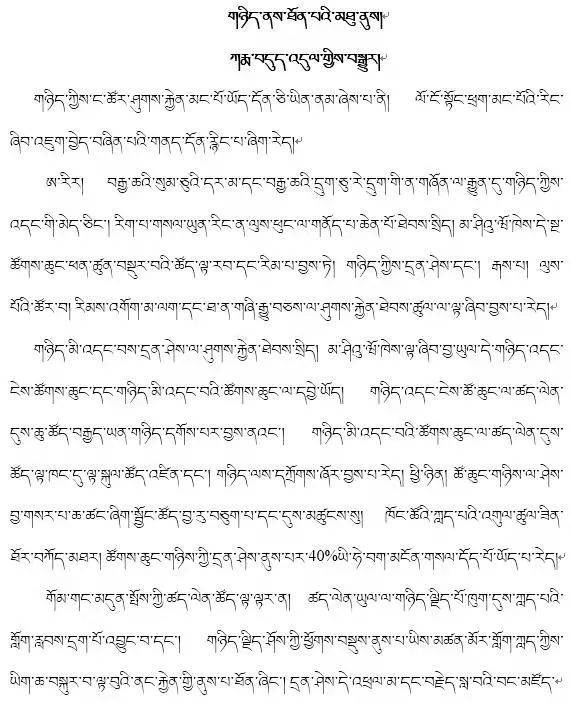 གཉིད་ནས་ཐོན་པའི་མཐུ་ནུས།
ཀརྨ་བདུད་འདུལ་གྱིས་བསྒྱུར།
གཉིད་ཀྱིས་ང་ཚོར་ཤུགས་རྐྱེན་མང་པོ་ཡོད་དོན་ཅི་ཡིན་ནམ་ཞེས་པ་ནི། ལོ་ངོ་སྟོང་ཕྲག་མང་པོའི་རིང་
ཞིབ་འཇུག་བྱེད་བཞིན་པའི་གནད་དོན་རྙིང་པ་ཞིག་རེད།
ཨ་རིར། བརྒྱ་ཆའི་སུམ་ཅུའི་དར་མ་དང་བརྒྱ་ཆའི་དྲུག་ཅུ་རེ་དྲུག་གི་ན་གཞོན་ལ་རྒྱུན་དུ་གཉིད་ཀྱིས་
འདང་གི་མེད་ཅིང་། རིག་པ་གསལ་ཡུན་རིང་ན་ལུས་ཕུང་ལ་གནོད་པ་ཆེན་པོ་ཐེབས་སྲིད། མ་ཤིའུ་ཝོ་ཁེས་དེ་སྔ་
ཚོགས་ཆུང་ཕན་ཚུན་བསྡུར་བའི་ཚོད་ལྟ་རབ་དང་རིམ་པ་བྱས་ཏེ། གཉིད་ཀྱིས་དྲན་ཤེས་དང་། རྒས་པ། ལུས་
པོའི་ཚོར་བ། རིམས་འགོག་མ་ལག་དང་ཐ་ན་གཞི་རྒྱུ་བཅས་ལ་ཤུགས་རྐྱེན་ཐེབས་ཚུལ་ལ་ལྟ་ཞིབ་བྱས་པ་རེད།
གཉིད་མི་འདང་བས་དྲན་ཤེས་ལ་ཤུགས་རྐྱེན་ཐེབས་སྲིད། མ་ཤིའུ་ཝོ་ཁེས་ལྟ་ཞིབ་བྱ་ཡུལ་དེ་གཉིད་འདང་
ངེས་ཚོགས་ཆུང་དང་གཉིད་མི་འདང་བའི་ཚོགས་ཆུང་ལ་དབྱེ་ཡོད། གཉིད་འདང་ངེས་ཚོ་ཆུང་ལ་ཚད་ལེན་
དུས་ཆུ་ཚོད་བརྒྱད་ཡན་གཉིད་དགོས་པར་བྱས་ནའང་། གཉིད་མི་འདང་བའི་ཚོགས་ཆུང་ལ་ཚད་ལེན་དུས་
ཚོད་ལྟ་ཁང་དུ་ལྟ་སྐུལ་ཚོད་འཛིན་དང་། གཉིད་ལས་དཀྲོགས་ཞོར་བྱས་པ་རེད། ཕྱི་ཉིན། ཚོ་ཆུང་གཉིས་ལ་ཤེས་
བྱ་གསར་པ་ཆ་ཚང་ཞིག་སྦྱོང་ཚོད་བྱ་རུ་བཅུག་པ་དང་དུས་མཚུངས་སུ། ཁོང་ཚོའི་ཀླད་པའི་འགུལ་ཚུལ་ཟིན་
ཐོར་བཀོད་མཐར། ཚོགས་ཆུང་གཉིས་ཀྱི་དྲན་ཤེས་ནུས་པར་40%ཡི་ཧེ་བག་མངོན་གསལ་དོད་པོ་ཡོད་པ་རེད།
གོམ་གང་མདུན་སྤོས་ཀྱི་ཚད་ལེན་ཚོད་ལྟ་ལྟར་ན། ཚད་ལེན་ཡུལ་ལ་གཉིད་ལྗིད་པོ་ཁུག་དུས་ཀླད་པའི་
གློག་རླབས་དྲག་པོ་འབྱུང་བ་དང་། གཉིད་ལྗིད་ཤོས་ཀྱི་ཕྱོགས་བསྡུས་ནུས་པ་ཡིས་མཚན་མོར་གློག་ཀླད་ཀྱིས་
ཡིག་ཆ་བསྐུར་བ་ལྟ་བུའི་ནང་རྐྱེན་གྱི་ནུས་པ་ཐོན་ཞིང་། དྲན་ཤེས་དེ་འཕྲལ་མ་དང་བརྗེད་སླ་བའི་བང་མཛོད་